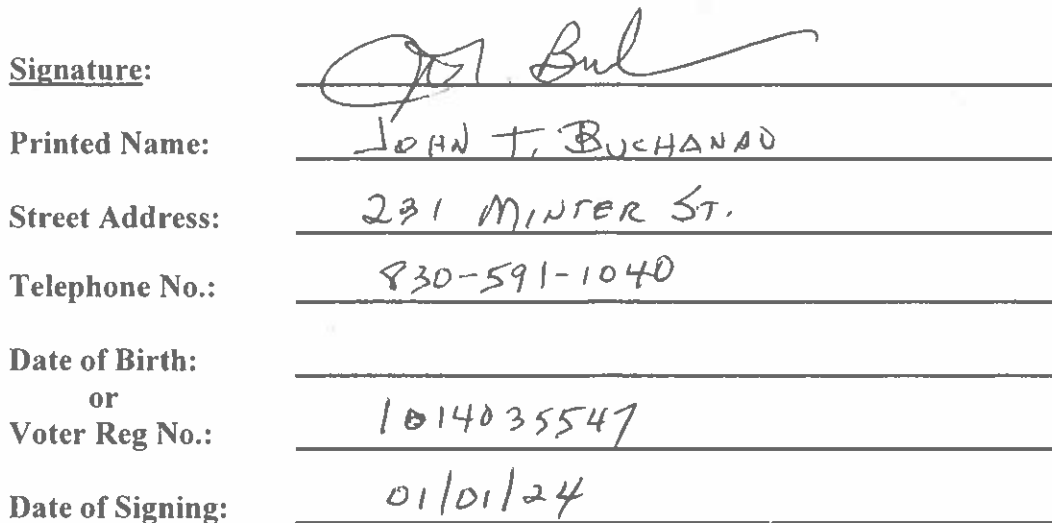 Signature:
Printed Name: JOHN T. BUCHANAN
Street Address: 231 MINTER ST.
Telephone No.: 830-591-1040
Date of Birth:
or
Voter Reg No.: 1014035547
Date of Signing: 01/01/24